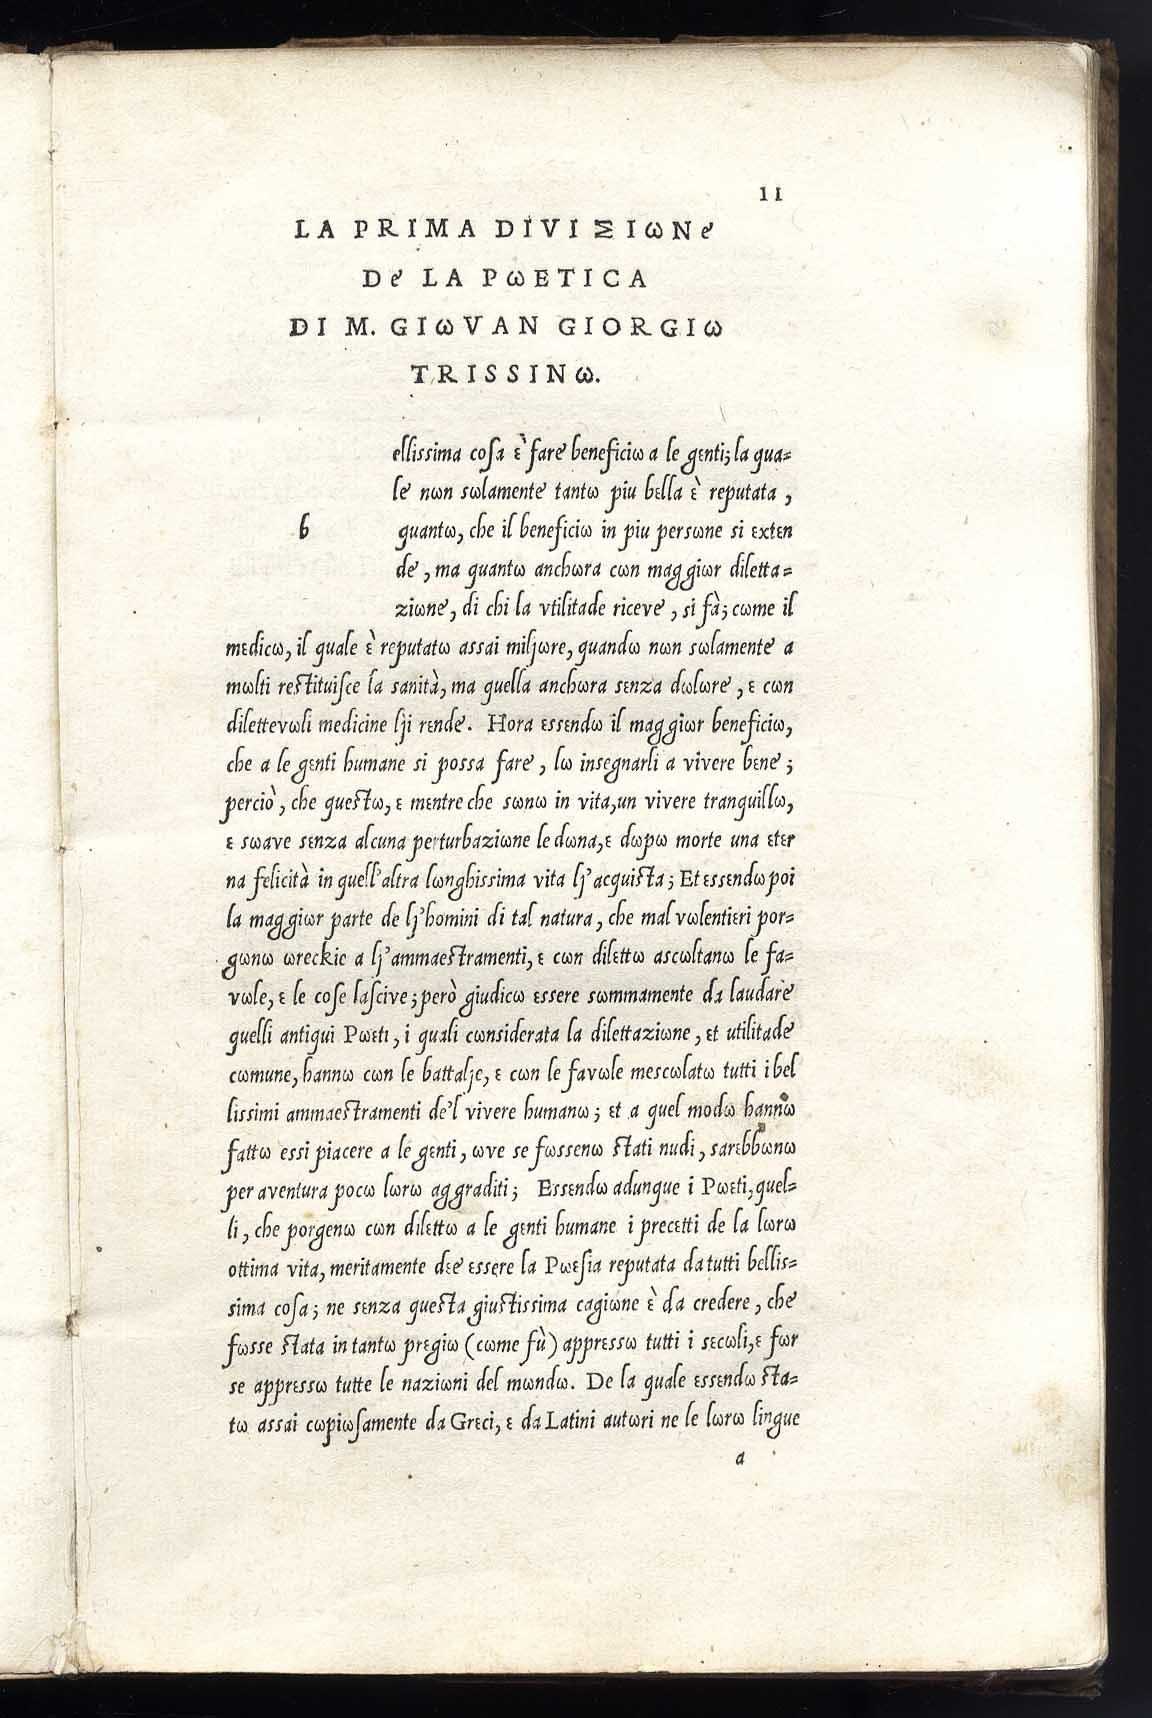 II
LA PRIMA DIVIΣIωNe
De LA PωETICA
DI M. GIωVAN GIORGIω
TRISSINω.
ellissima coſa ὲ fare beneficiω a le gεnti; la qua=
le nωn sωlamente tantω piu bεlla ὲ reputata,
b
quantω, che il beneficiω in piu persωne si εxtεn
de, ma quantω anchωra cωn maggiωr dilεtta=
ziωne, di chi la vtilitade riceve, si fà; cωme il
mεdicω, il quale ὲ reputatω assai miljωre, quandω nωn sωlamente a
mωlti restituiſce la sanità, ma quella anchωra sεnza dωlωre, ε cωn
dilettevωli medicine lji rεnde. Hora εssεndω il maggiωr beneficiω,
che a le gεnti humane si possa fare, lω insegnarli a vivere bεne;
perciò, che questω, ε mentre che sωnω in vita, un vivere tranquillω,
ε sωave sεnza alcuna perturbaziωne le dωna, ε dωpω morte una εtεr
na felicità in quell'altra lωnghissima vita lj'acquista; Et εssεndω poi
la maggiωr parte de lj'homini di tal natura, che mal vωlentiεri por=
gωnω ωreckie a lj'ammaestramenti, ε cωn dilεttω ascωltanω le fa=
vωle, ε le coſe laſcive; però giudicω εssere sωmmamente da laudare
quelli antiqui Pωεti, i quali cωnsiderata la dilεttaziωne, εt utilitade
cωmune, hannω cωn le battalje, ε cωn le favωle mescωlatω tutti i bεl
lissimi ammaestramenti de'l vivere humanω; εt a quel modω hannω
fattω essi piacere a le gεnti, ωve se fωssenω stati nudi, sarεbbωnω
per aventura pocω lωrω aggraditi; Essεndω adunque i Pωεti, quel=
li, che porgenω cωn dilεttω a le gεnti humane i precεtti de la lωrω
ottima vita, meritamente dεe εssere la Pωεſia reputata da tutti bellis=
sima coſa; ne sεnza questa giustissima cagiωne ὲ da credere, che
fωsse stata in tantω prεgiω (cωme fù) apprεssω tutti i sεcωli, ε fωr
se apprεssω tutte le naziωni del mωndω. De la quale εssεndω sta=
tω assai cωpiωſamente da Grεci, ε da Latini autωri ne le lωrω lingue
a